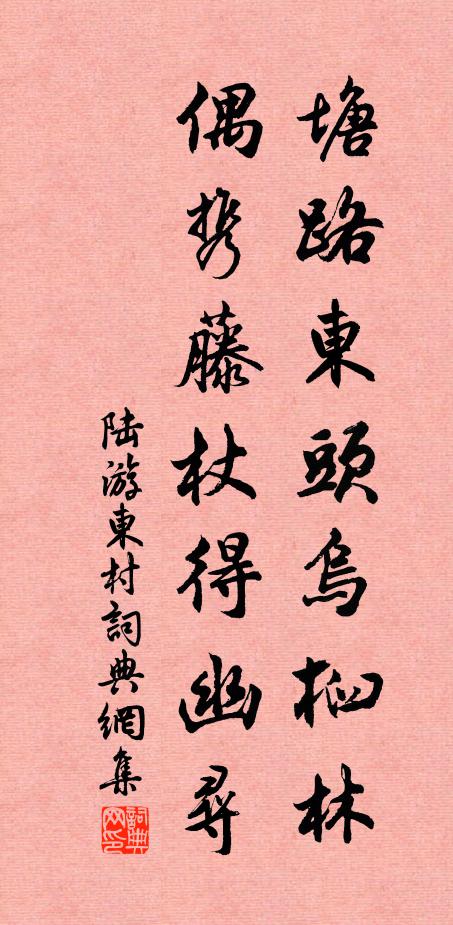 塘路東頭烏桕林
偶携藤杖得幽尋
陆游東村詞典網集
詞典网印